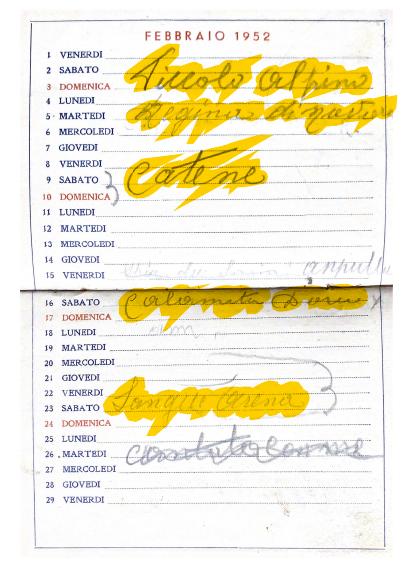 FEBBRAIO 1952
1 VENERDI
2 SABATO Piccolo alpino
3 DOMENICA
4 LUNEDI
5 MARTEDI Regina di Navarra
6 MERCOLEDI
7 GIOVEDI
8 VENERDI
9 SABATO Catene
10 DOMENICA
11 LUNEDI
12 MARTEDI
13 MERCOLEDI
14 GIOVEDI
15 VENERDI
16 SABATO Calamita d'oro
17 DOMENICA
18 LUNEDI
19 MARTEDI
20 MERCOLEDI
21 GIOVEDI
22 VENERDI
23 SABATO Sangue arena
24 DOMENICA
25 LUNEDI
26 MARTEDI
27 MERCOLEDI
28 GIOVEDI
29 VENERDI